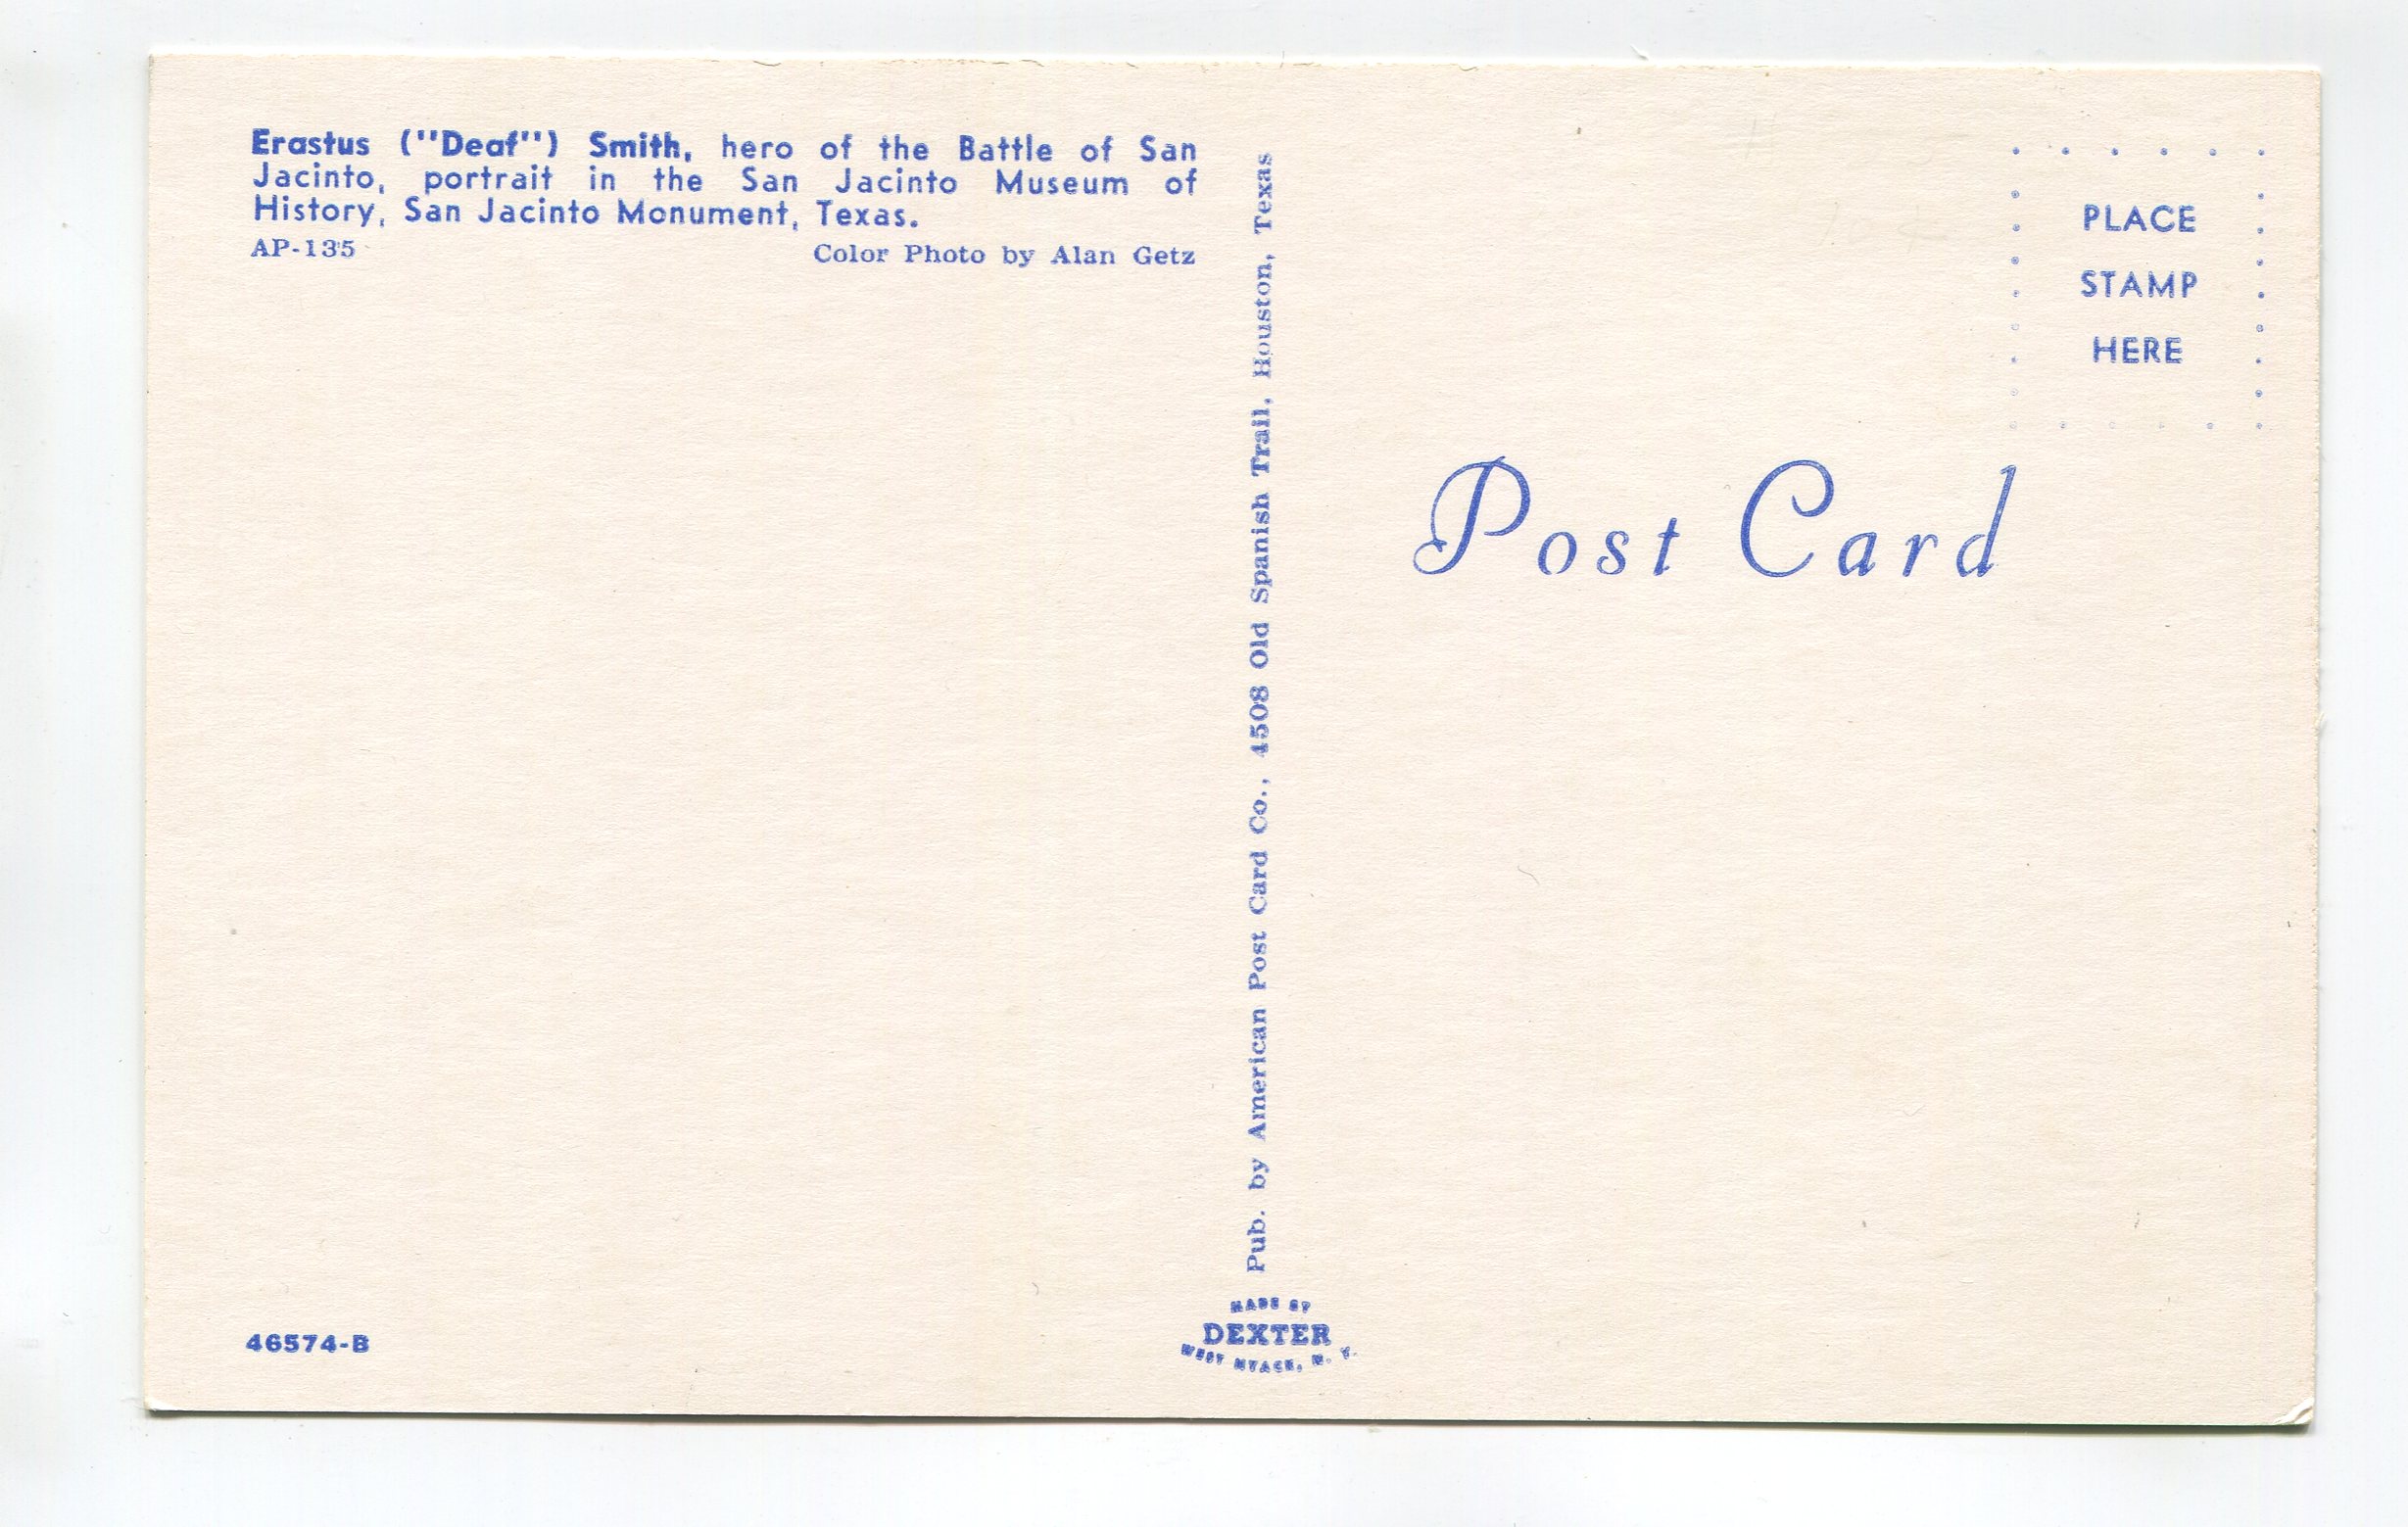 Erastus ("Deaf") Smith, hero of the Battle of San
Jacinto, portrait in the San Jacinto Museum of
History, San Jacinto Monument, Texas.
AP-135 Color Photo by Alan Getz
Pub. by American Post Card Co., 4508 Old Spanish Trail, Houston, Texas
PLACE
STAMP
HERE
Post Card
46574-B
MADE BY
DEXTER
WEST NYACK, N. Y.